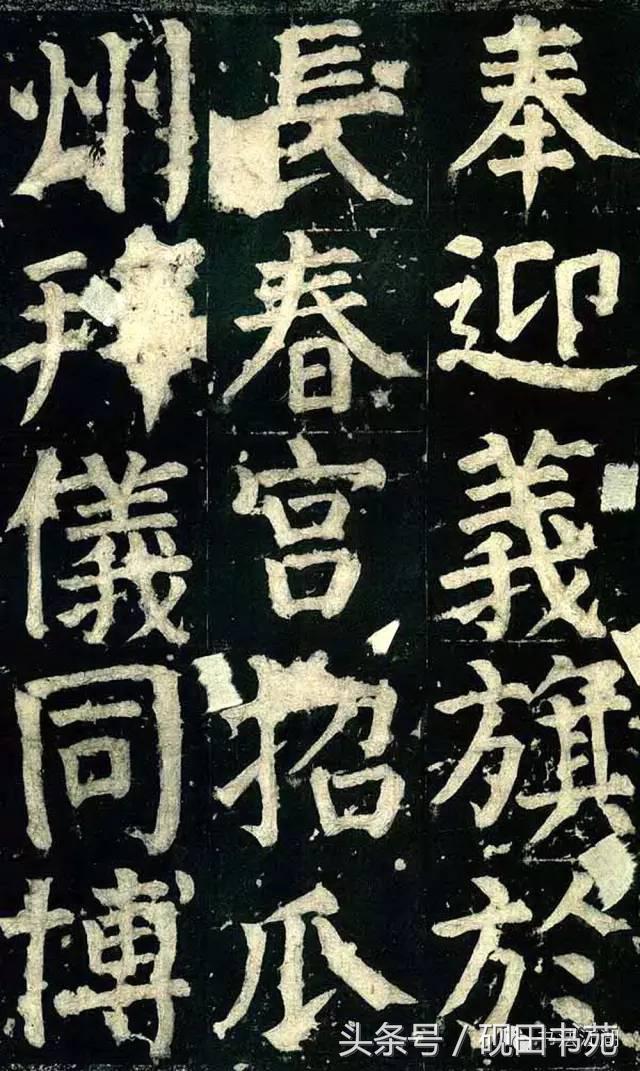 奉迎義旗於
長春宮招瓜
州拜儀同博
头条号／砚田书苑